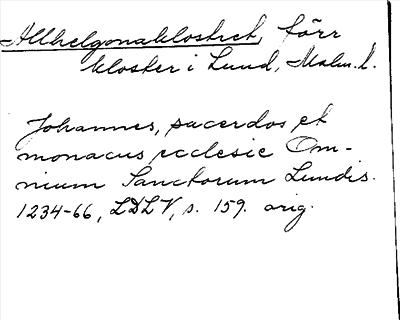 Allhelgonaklostret, förr
kloster i Lund, Malm. l.
Johannes, sacerdos et
monacus ecclesie Om-
nium Sanctorum Lundis.
1234-66, LDLV, s. 159. orig.